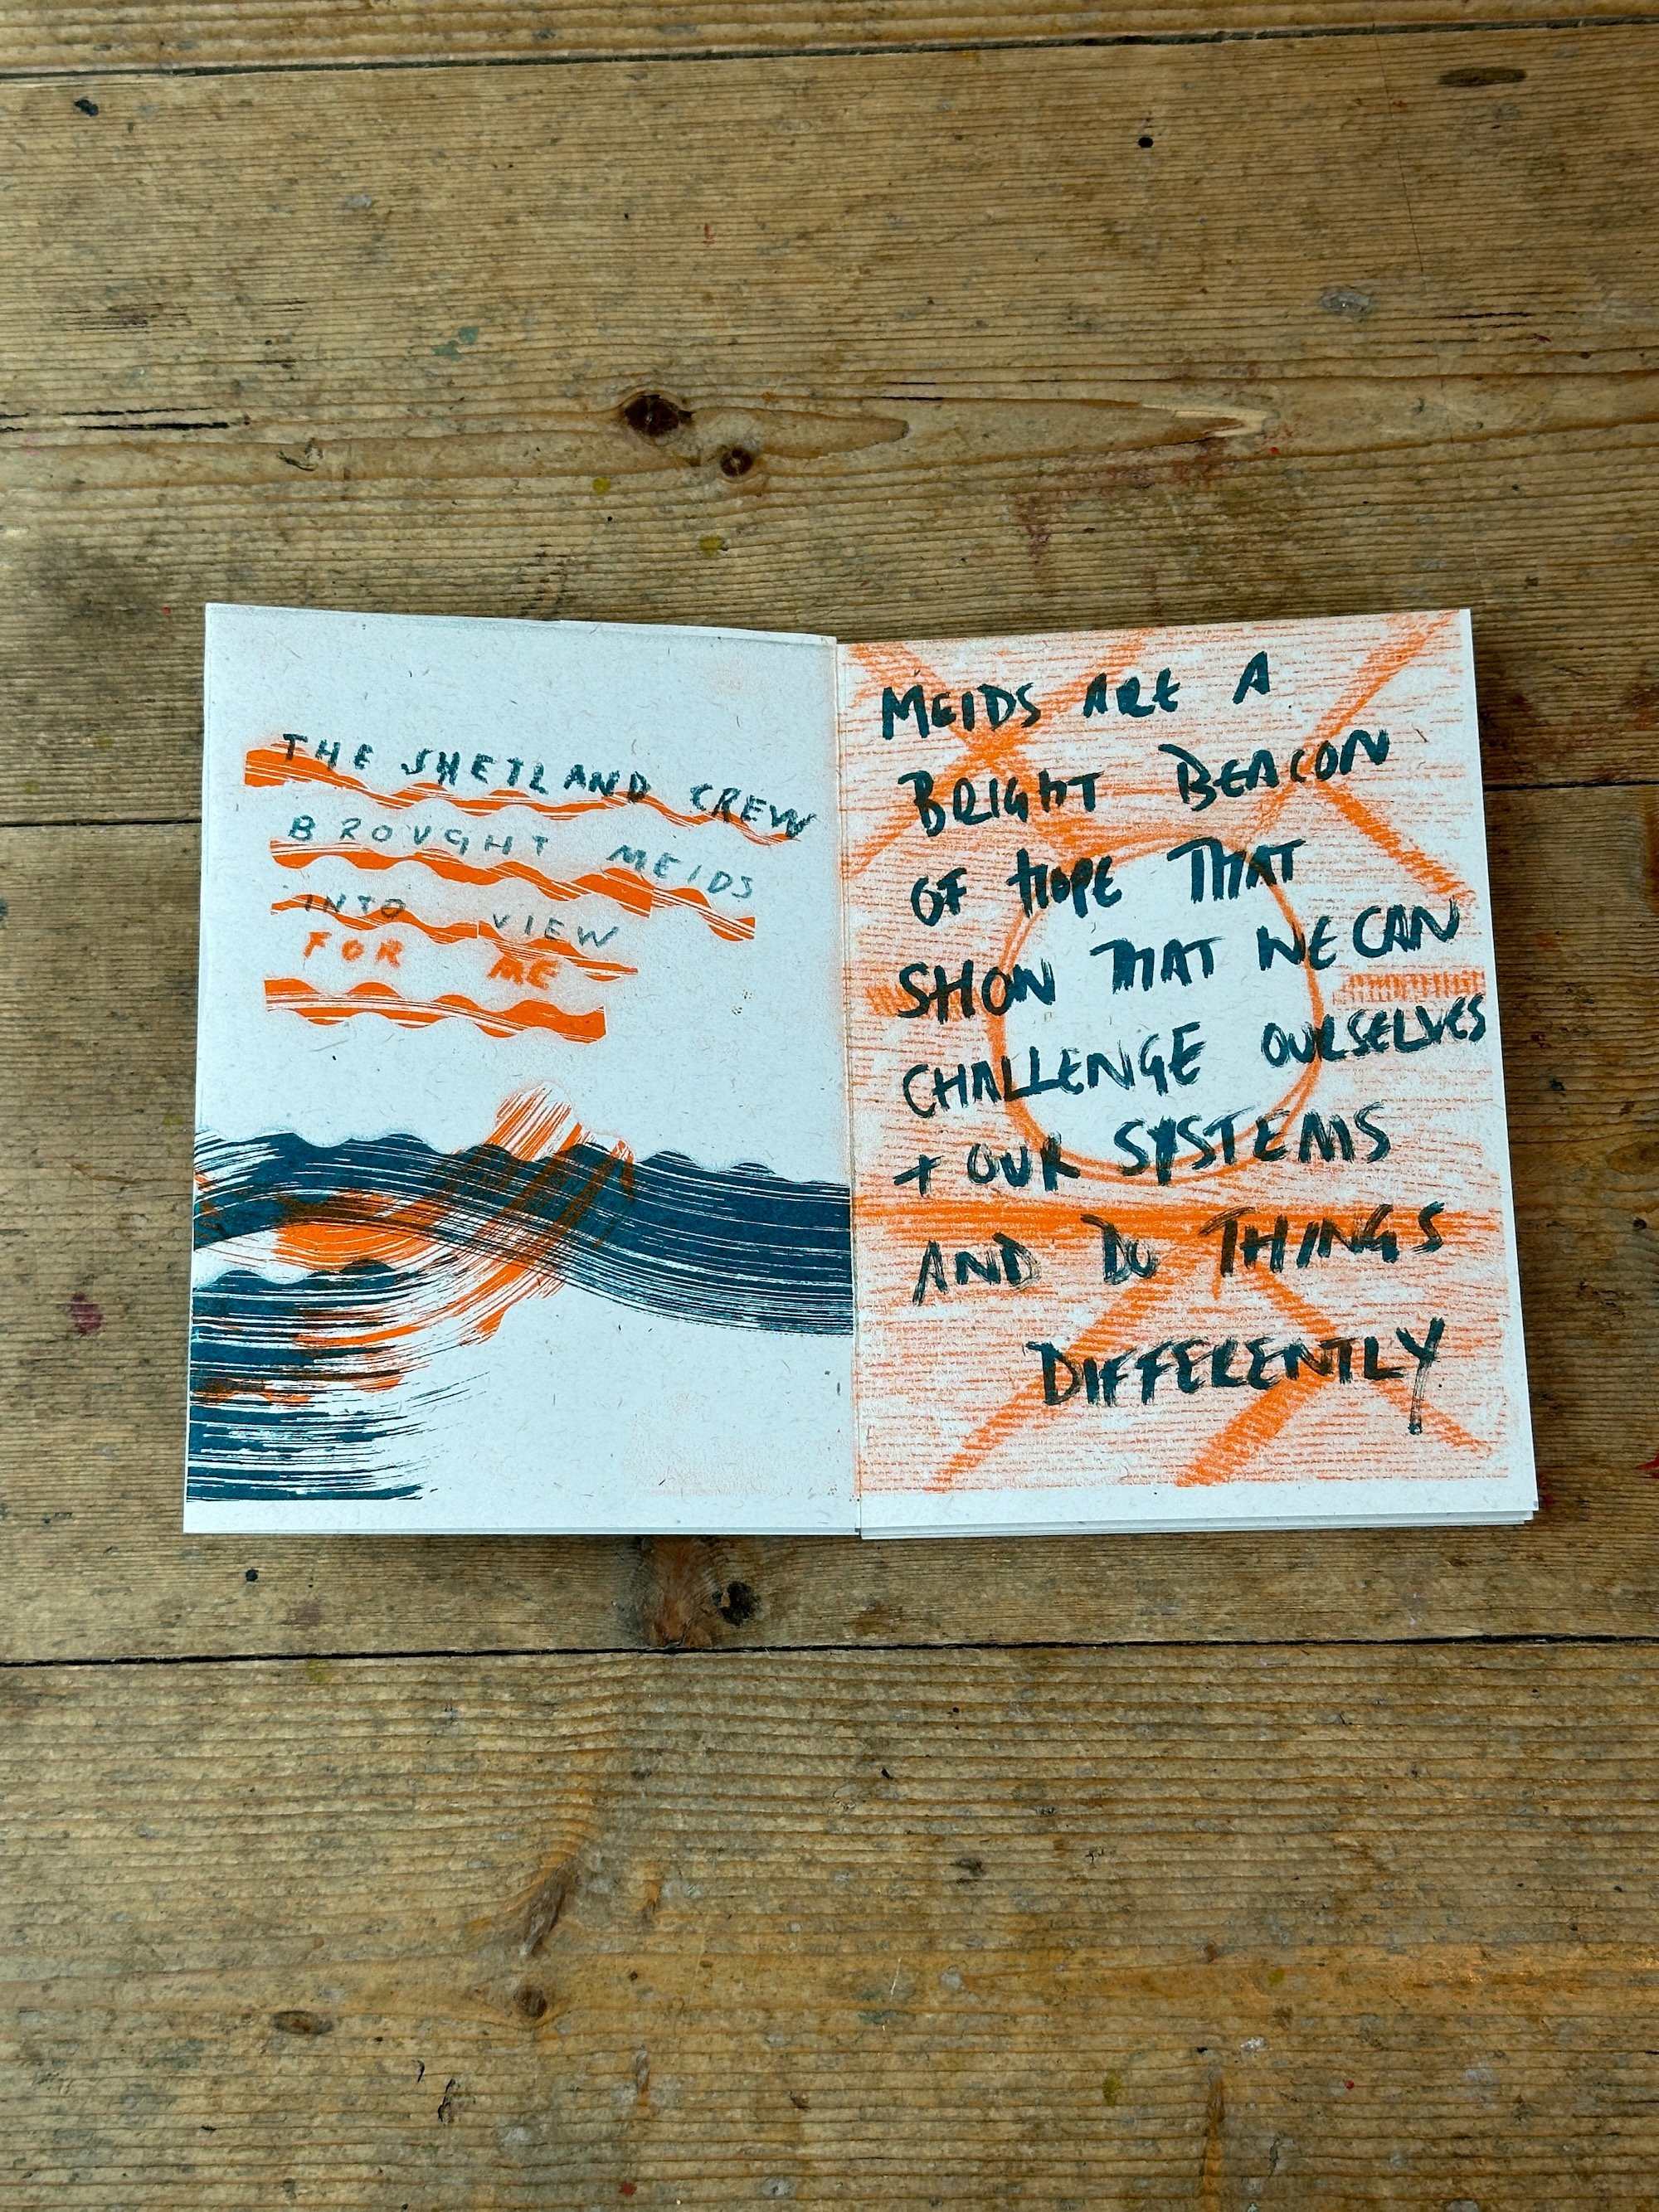 THE SHETLAND CREW
BROUGHT MEIDS
INTO VIEW
FOR ME
MEIDS ARE A
BRIGHT BEACON
OF HOPE THAT
SHOW THAT WE CAN
CHALLENGE OURSELVES
+ OUR SYSTEMS
AND DO THINGS
DIFFERENTLY